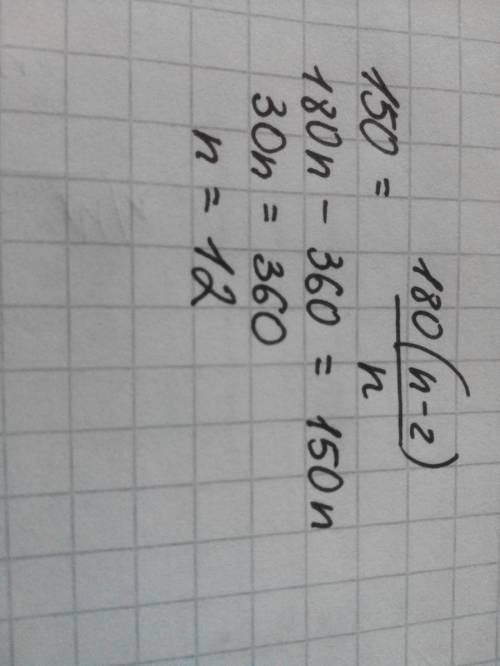 150 = 180(n-2)/n
180n - 360 = 150n
30n = 360
n = 12